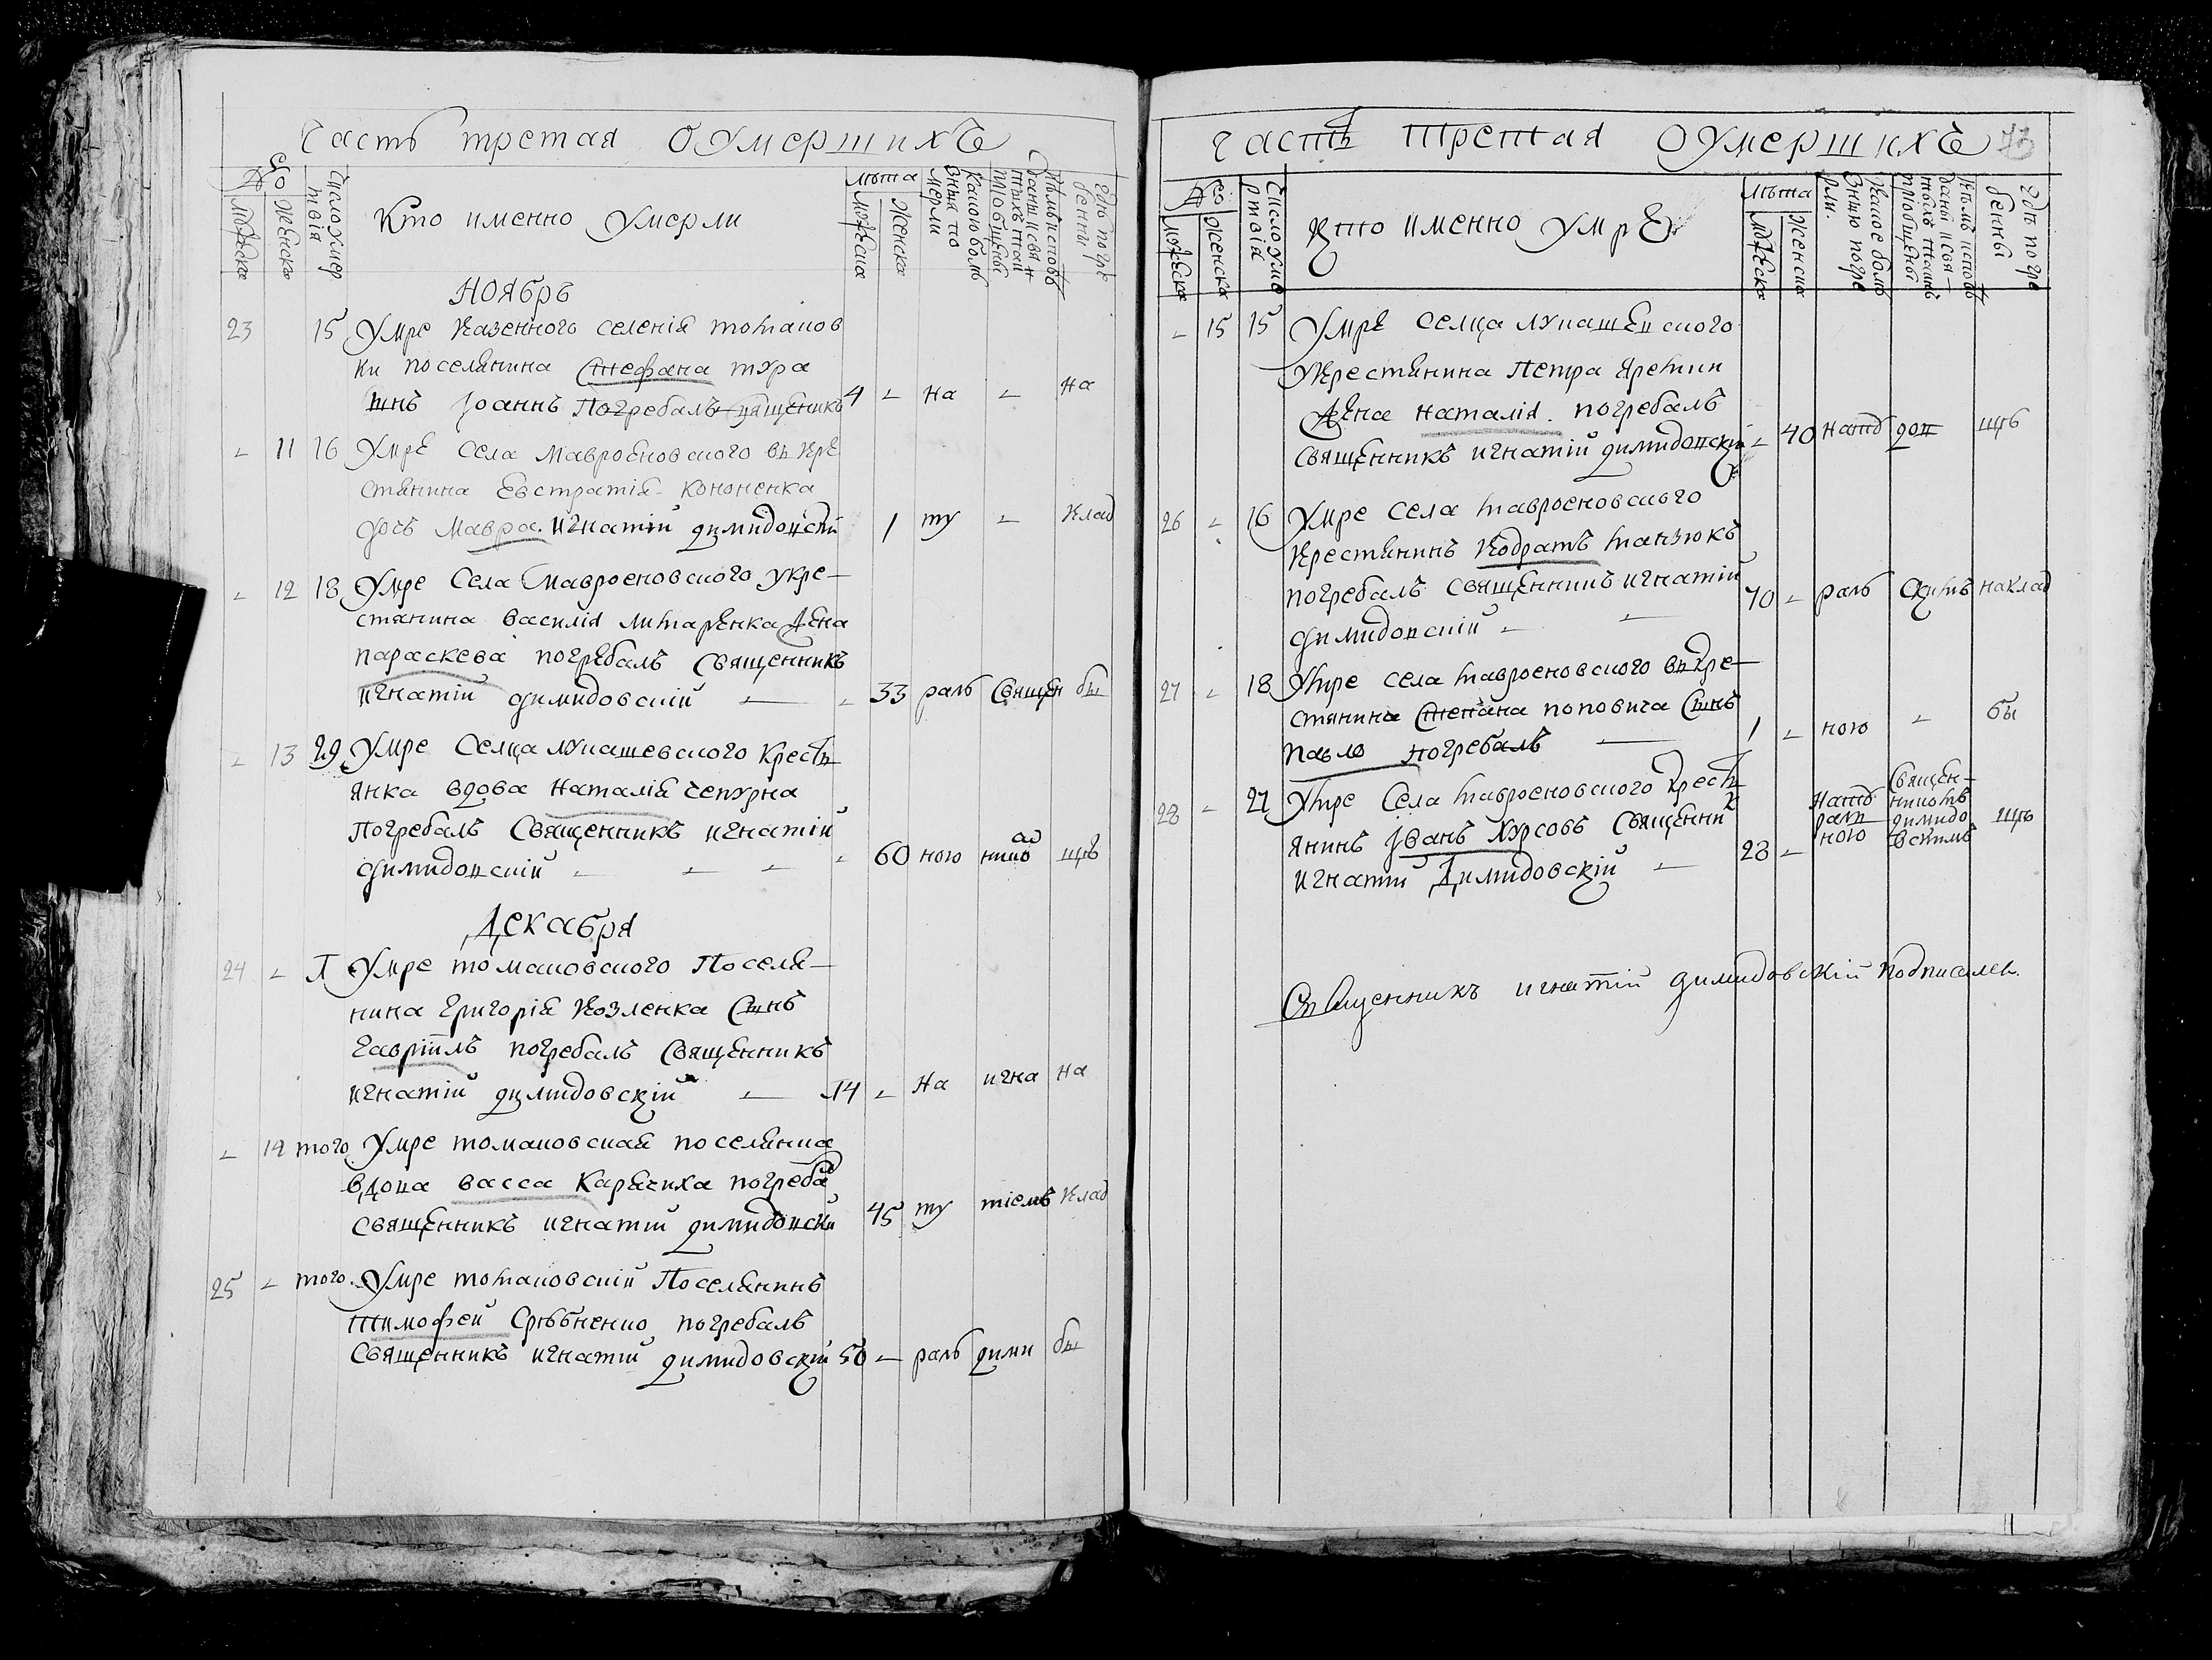 Часть третая О Умершихъ
№
Мужеска
Женска
Число умертвія
Кто именно Умерли
лѣта
Мужеска
Женска
Какою болезнію померли
Кѣмъ исповѣданы и святыхъ таин пріобщены
Гдѣ погребенны
Ноябрь
23 15 Умре Казенного селенія томанов
ки поселянина Стефана тура
сынъ Іоаннъ Погребалъ Священникъ 4 – На – На
– 11 16 Умре Села Мавроеновского въ кре
стянина Евстратія Кононенка
дочь Мавра. Игнатій димидовскій 1 ту – Клад
– 12 18 Умре Села Мавроеновского укре–
стянина Василія литаренка Жена
параскева погребалъ Священникъ
игнатій димидовскій – – 33 раль Священ бы
– 13 29 Умре Селца лукашевского Кресть
янка вдова Наталія чепурна
Погребалъ Священникъ игнатій
димидовскій – – – – 60 ною нико щѣ
Декабря
24 – Умре томановского Поселя–
нина Григорія Козленка Сынъ
Гавріилъ погребалъ Священникъ
игнатій димидовскій – 14 – На игна На
– 14 того Умре томановская поселянка
вдова васса Карасиха погреба
священникъ игнатій димидовски 45 ту тіемъ Клад
25 – того. Умре томановскій Поселянинъ
Тимофей погребалъ
Священникъ игнатій димидовскій 50 – раль дими бы
Часть Третая О Умершихъ 73
№
Мужеска
Женска
Число умертвія
Кто именно умре
лѣта
Мужеска
Женска
Какое болезнію померли.
Кѣмъ исповѣданы и святыхъ таинъ пріобщены
Гдѣ погребены
– 15 15 Умре селца лукашевского
Укрестянина Петра Яретин
Жена наталія. погребалъ
священникъ игнатій димидовскій – 40 щѣ
26 – 16 Умре села мавроеновсного
Крестянинъ Кодратъ манзюкъ
погребалъ священникъ игнатій
димидовскій – – 70 – раль наклад
27 – 18 Умре села мавроеновского въ кре–
стянина Степана поповича Сынъ
павло погребалъ – 1 – ною – бы
28 – 27 Умре Села мавроеновского Кресть
янинъ Іванъ Курсовъ Священник
игнатій Димидовскій – 28 – ною Священ–никомъ димидовскимъ щѣ
Священникъ игнатій димидовскій подписалъ.